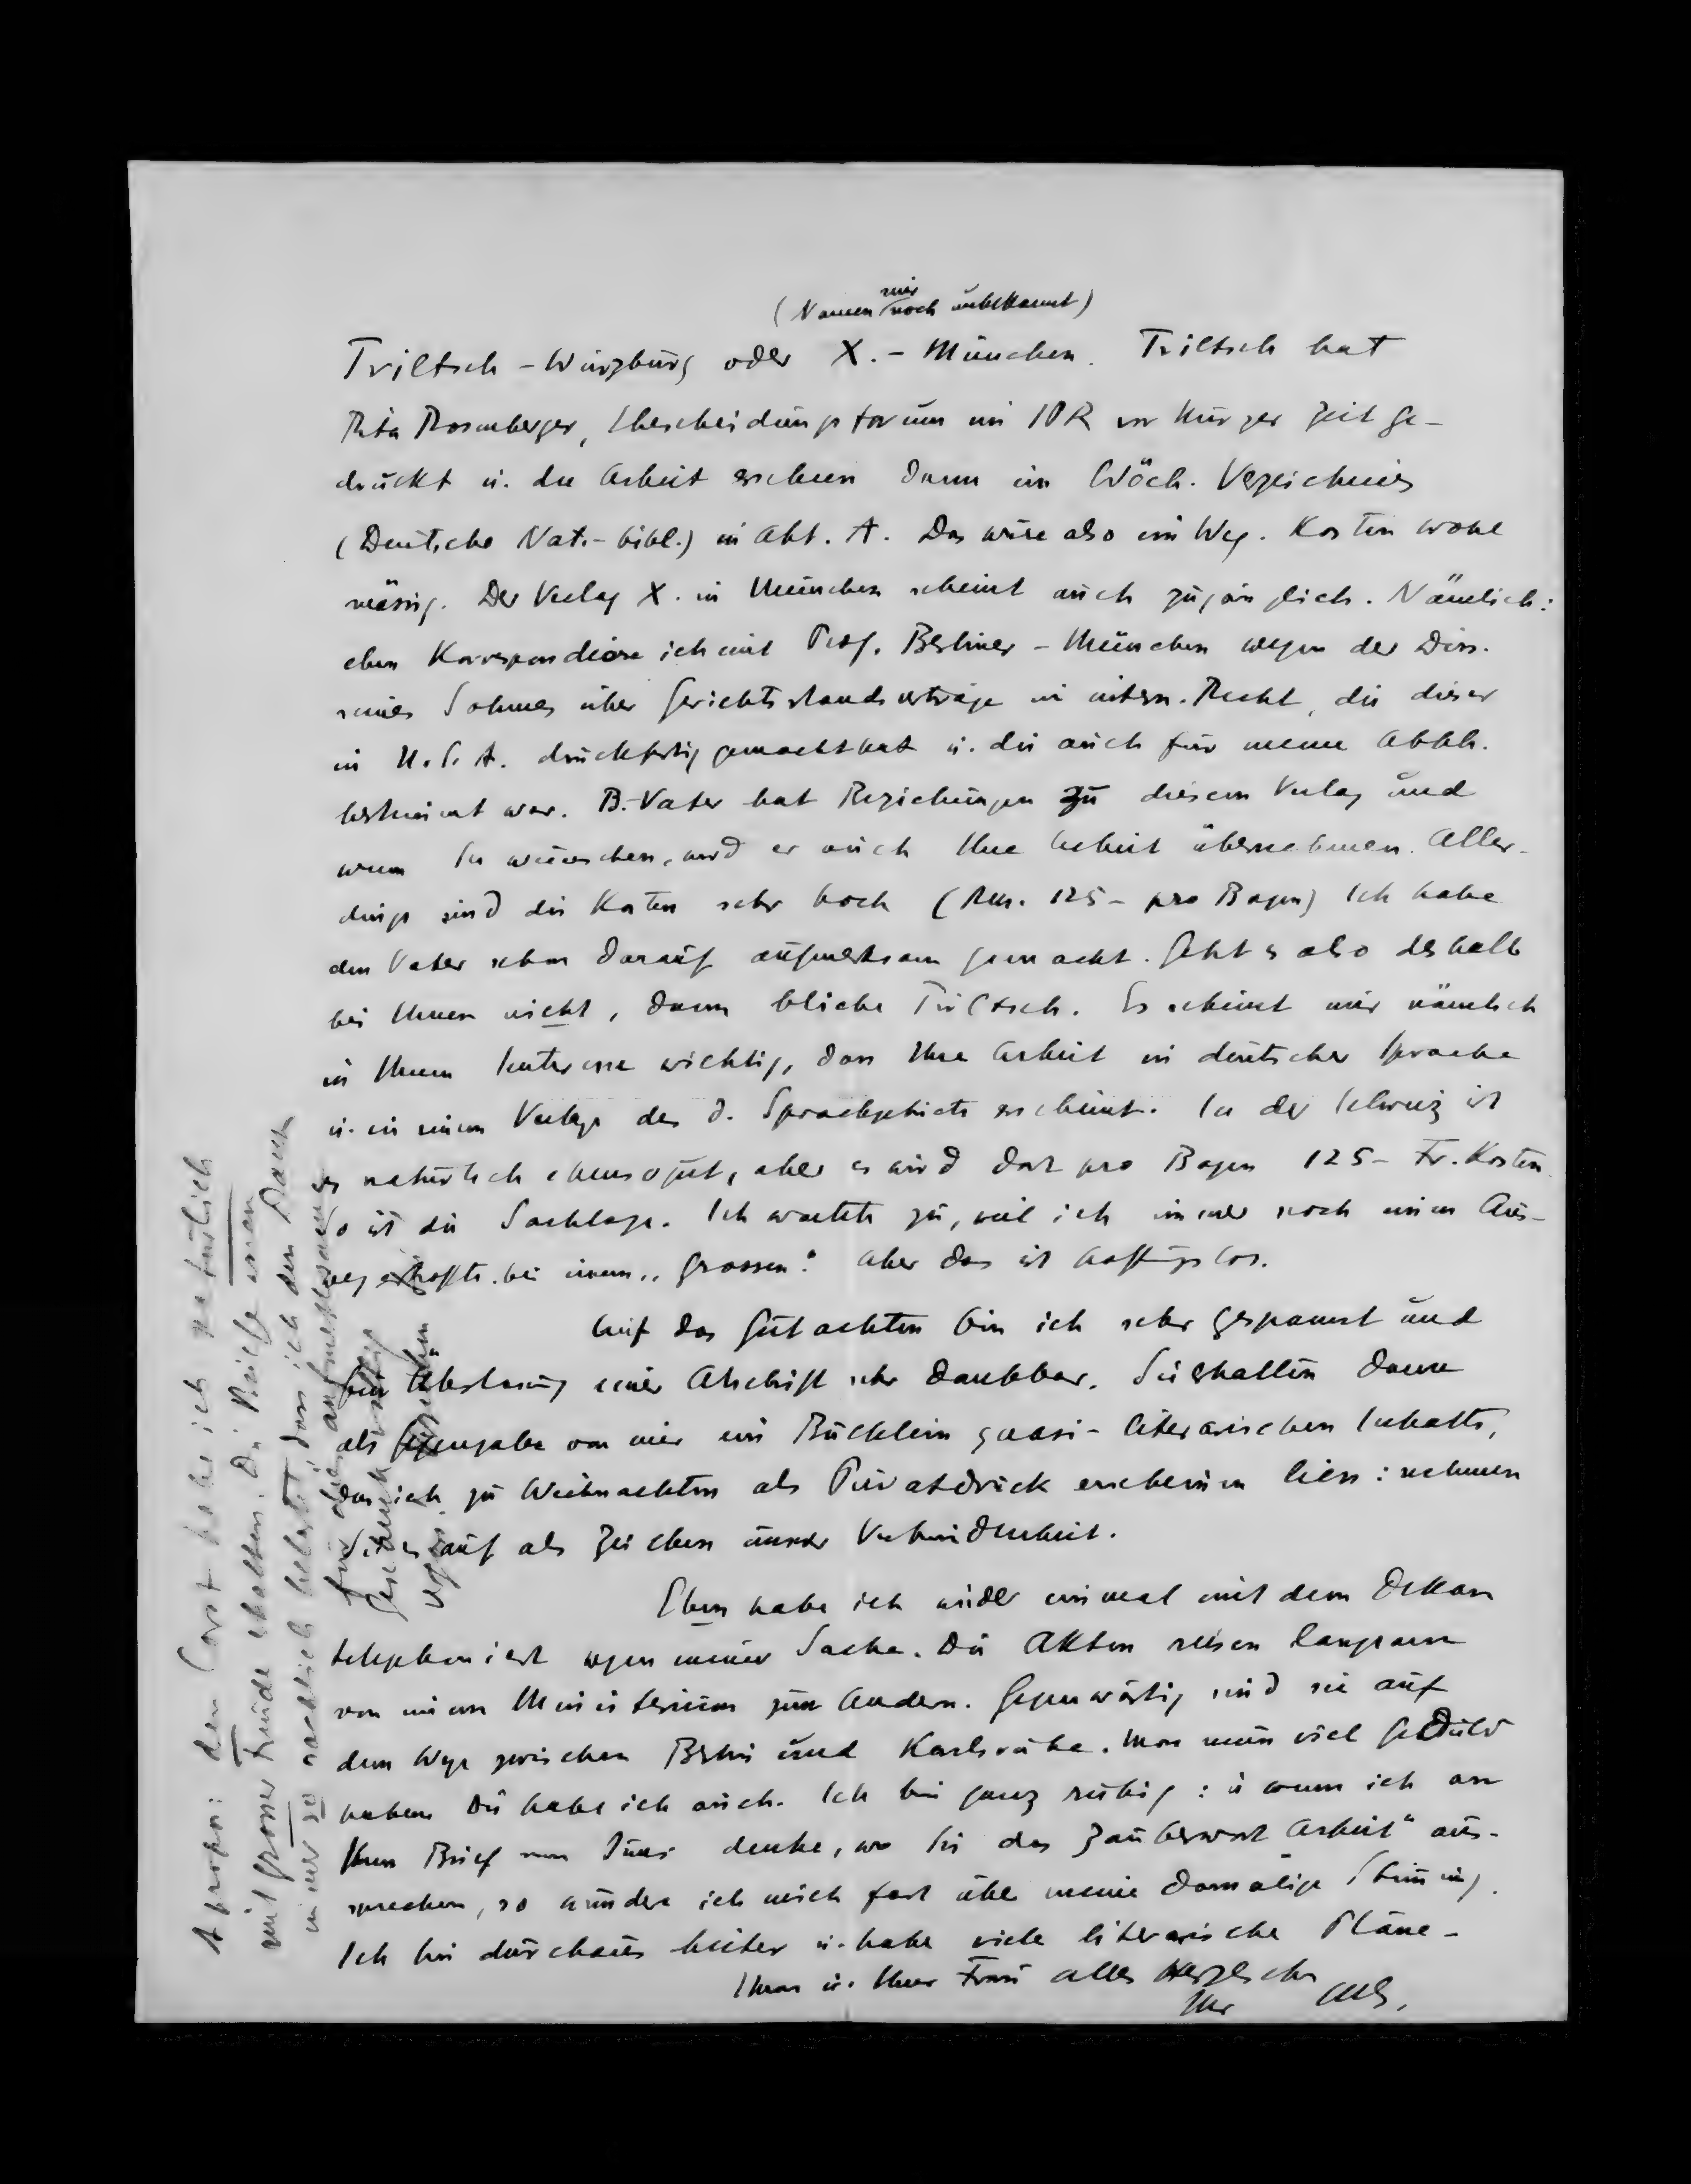 (Namen mir noch unbekannt)
Triltsch - Würzburg oder X. - München. Triltsch hat
Rita Rosenberger, Ehescheidungsforum im IPR vor kurzer Zeit ge-
druckt u. die Arbeit erschien dann im Wöch. Verzeichnis
(Deutsche Nat.-bibl.) in Abt. A. Das wäre also ein Weg. Kosten wohl
mässig. Der Verlag X. in München scheint auch zugänglich. Nämlich:
eben korrespondiere ich mit Prof. Berliner - München wegen der Diss.
seines Sohnes über Gerichtsstandsverträge im intern. Recht, die dieser
in U.S.A. druckfertig gemacht hat u. die auch für meine Abhh.
bestimmt war. B.-Vater hat Beziehungen zu diesem Verlag und
wenn Sie wünschen, wird er auch Ihre Arbeit übernehmen. Aller-
dings sind die Kosten sehr hoch (Rm. 125 - pro Bogen) Ich habe
den Vater schon darauf aufmerksam gemacht. Geht es also deshalb
bei Ihnen nicht, dann bliebe Triltsch. Es scheint mir nämlich
in Ihrem Interesse wichtig, dass Ihre Arbeit in deutscher Sprache
u. in einem Verlage des d. Sprachgebiets erscheint. In der Schweiz ist
es natürlich ebensogut, aber es wird dort pro Bogen 125 - Fr. Kosten.
So ist die Sachlage. Ich wartete zu, weil ich immer noch einen Aus-
weg erhoffte bei einem „Grossen". Aber das ist hoffnungslos.
Auf das Gutachten bin ich sehr gespannt und
für Überlassung einer Abschrift sehr dankbar. Sie erhalten dann
als Gegengabe von mir ein Büchlein quasi-literarischen Inhalts,
das ich zu Weihnachten als Privatdruck erscheinen liess: nehmen
Sie es auf als Zeichen unserer Verbundenheit.
Eben habe ich wieder einmal mit dem Dekan
telephoniert wegen meiner Sache. Die Akten reisen langsam
von einem Ministerium zum Andern. Gegenwärtig sind sie auf
dem Wege zwischen Berlin und Karlsruhe. Man muss viel Geduld
haben. Die habe ich auch. Ich bin ganz ruhig: u. wenn ich an
Ihren Brief vom Juni denke, wo Sie das Zauberwort „Arbeit" aus-
sprechen, so wundere ich mich fast über meine damalige Stimmung.
Ich bin durchaus heiter u. habe viele literarische Pläne -
Ihnen u. Ihrer Frau alles Herzliche
Ihr
Apropos: den Cost habe ich natürlich
mit grosser Freude erhalten. Die Reise einen
immer so nachlich belastet, dass ich den Dank
für die aufmerksame
Geschenk
vergass.